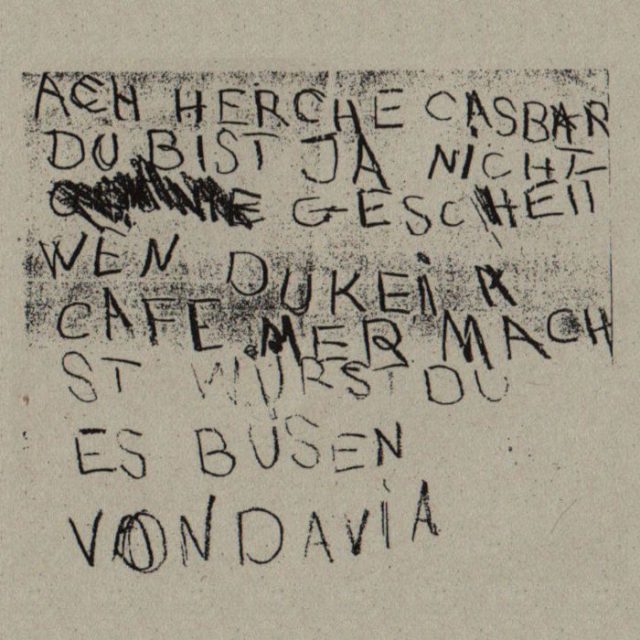 ACH HERCHE CASBAR
DU BIST JA NICHT
GESCHEIT
WEN DU KEIN
CAFE MER MACH
ST WÜRST DU
ES BÜSEN
VON DAVIA